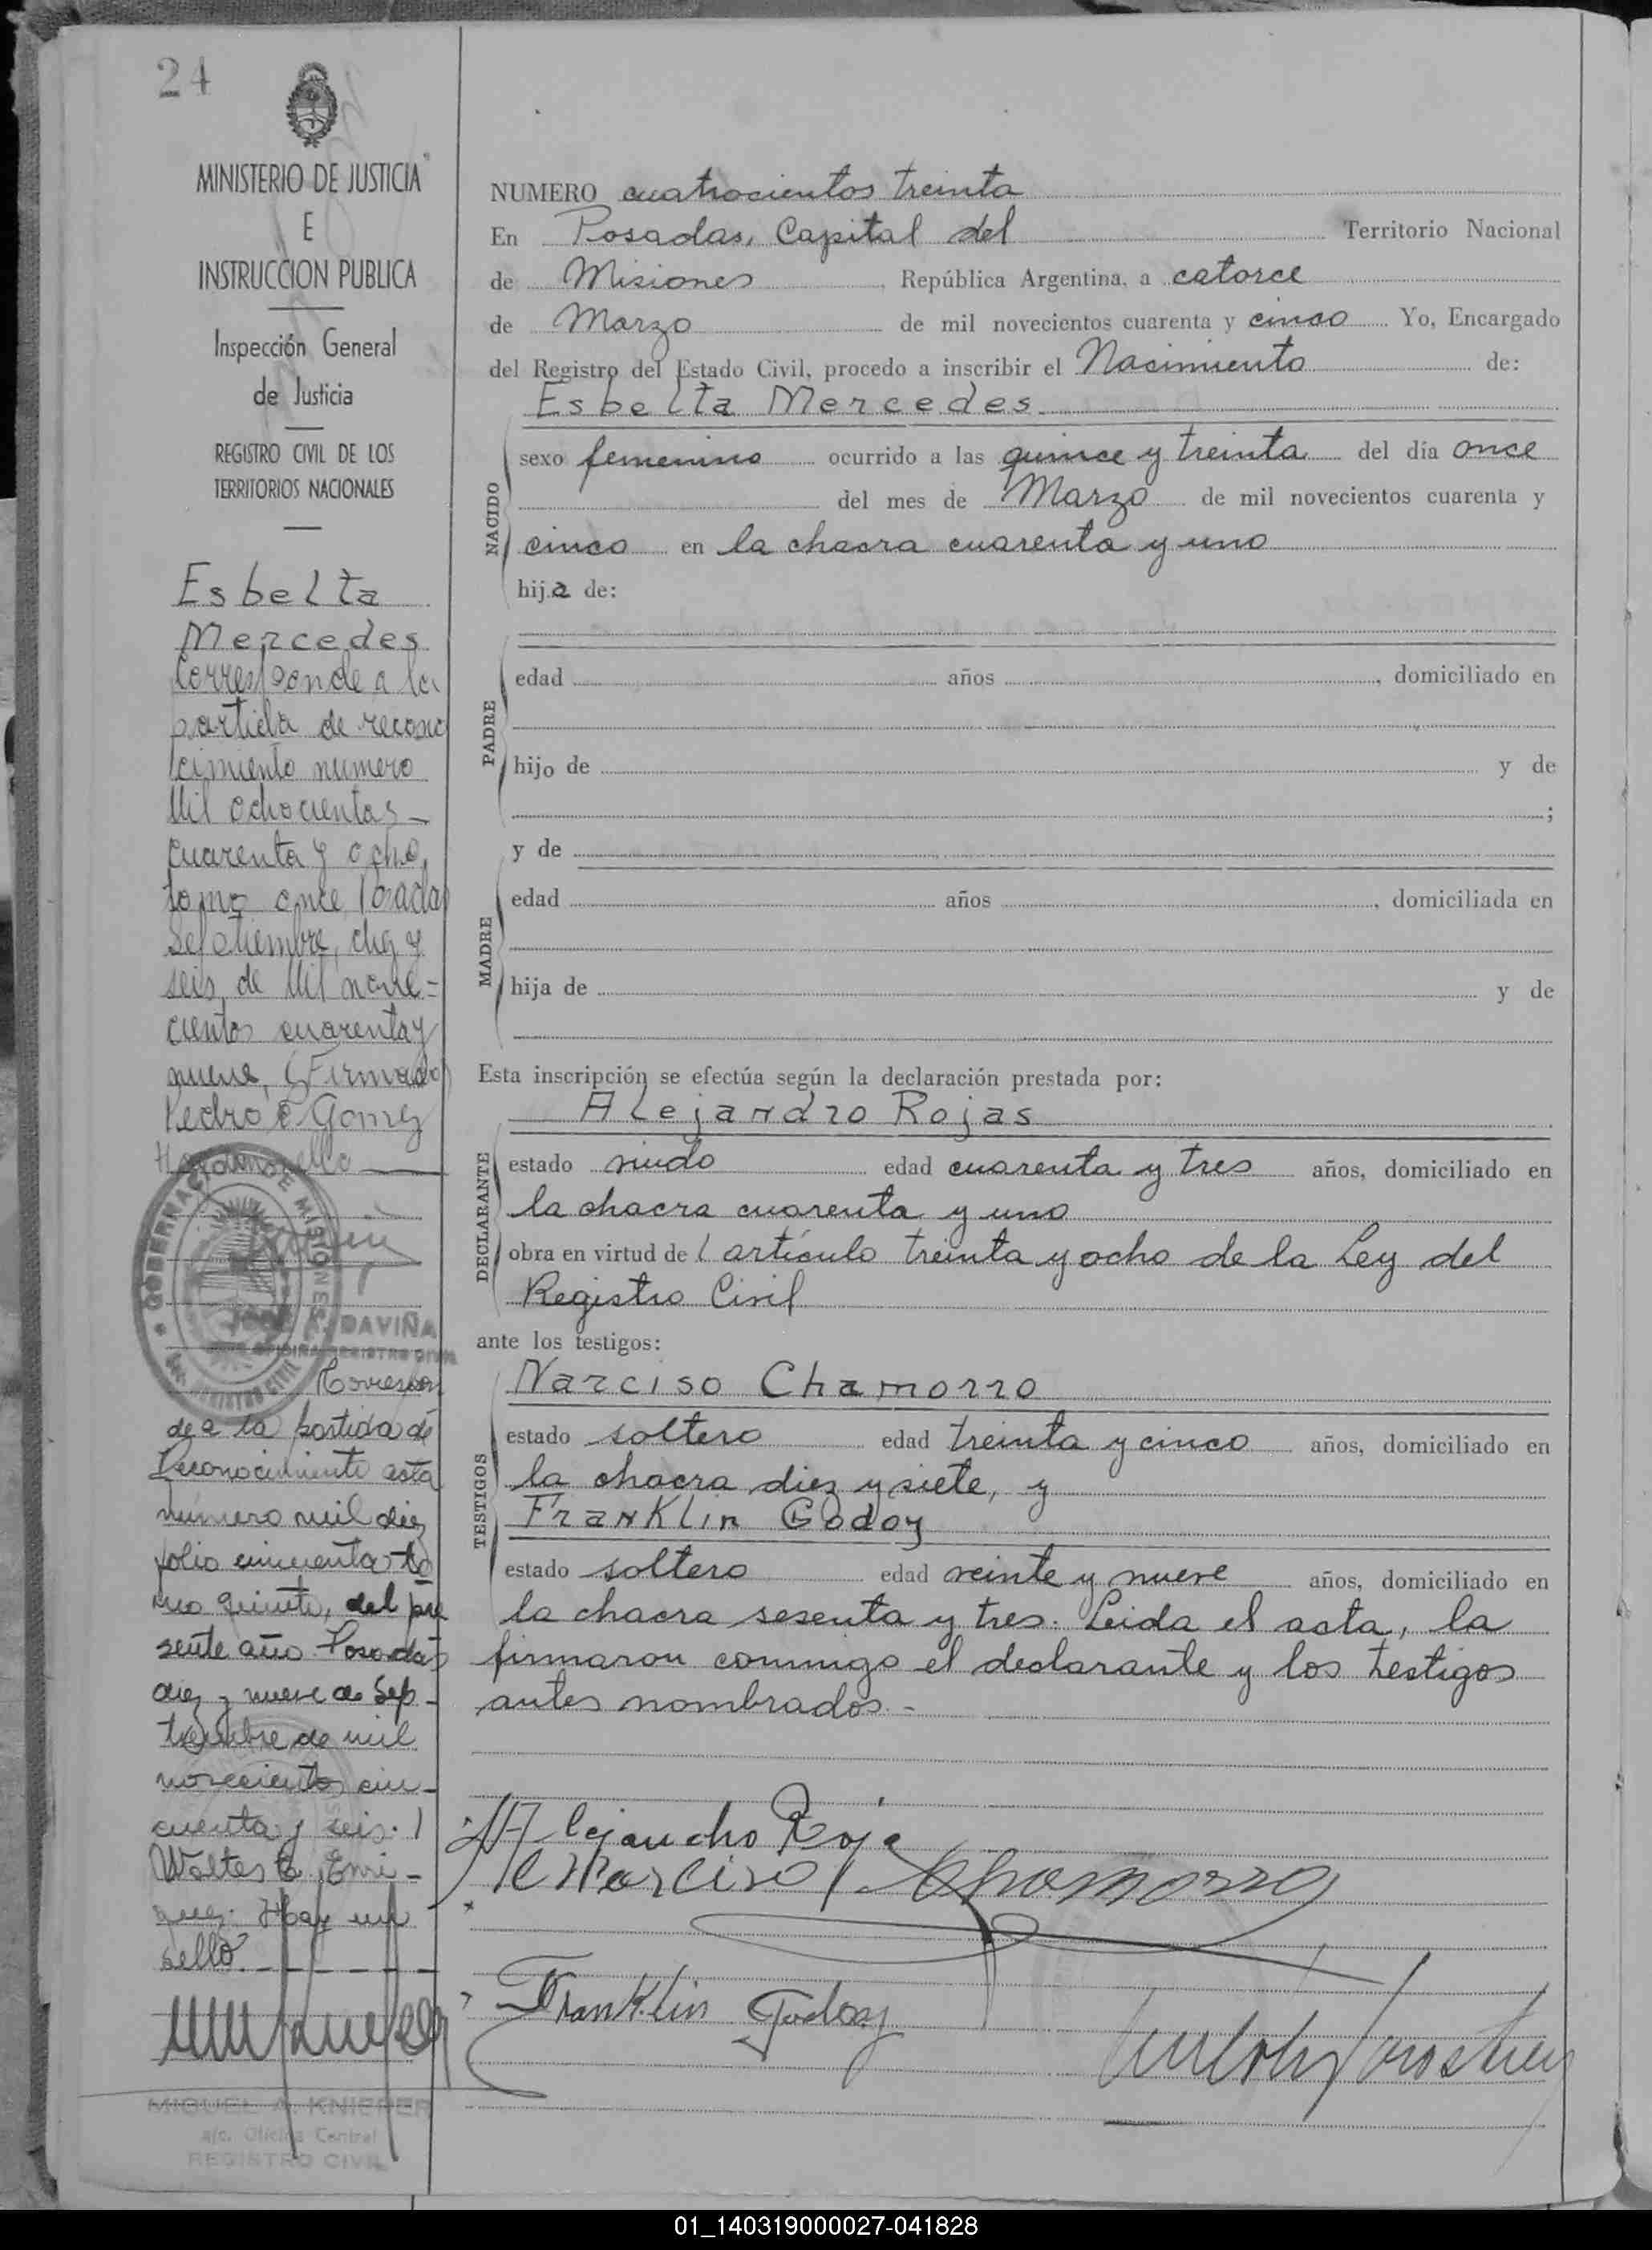 24
MINISTERIO DE JUSTICIA
E
INSTRUCCION PUBLICA
Inspección General
de Justicia
REGISTRO CIVIL DE LOS
TERRITORIOS NACIONALES
Esbelta
Mercedes
Corresponde a la
partida de recono
cimiento numero
Mil ochocientos
cuarenta y ocho,
tomo once
Setiembre, diez y
seis, de Mil nove-
cientos cuarenta y
nueve, (Firmado)
Pedro Gomez
GOBERNACION DE MISIONES
DAVIÑA
OFICINA REGISTRO CIVIL
Correspon
de a la partida de
Reconocimiento acta
número mil diez
folio cincuenta to
mo quinto, del pre
sente año. Posadas
diez y nueve de Sep-
tiembre de mil
novecientos cin-
cuenta y seis.
Walter
Hay un
sello.
MIGUEL A. KNIEPER
a/c. Oficina Central
REGISTRO CIVIL
NUMERO cuatrocientos treinta
En Posadas, Capital del Territorio Nacional
de Misiones, República Argentina, a catorce
de Marzo de mil novecientos cuarenta y cinco Yo, Encargado
del Registro del Estado Civil, procedo a inscribir el Nacimiento de:
Esbelta Mercedes
NACIDO
sexo femenino ocurrido a las quince y treinta del día once
del mes de Marzo de mil novecientos cuarenta y
cinco en la chacra cuarenta y uno
hija de:
PADRE
edad años, domiciliado en
hijo de y de
;
y de
MADRE
edad años, domiciliada en
hija de y de
Esta inscripción se efectúa según la declaración prestada por:
Alejandro Rojas
DECLARANTE
estado viudo edad cuarenta y tres años, domiciliado en
la chacra cuarenta y uno
obra en virtud del artículo treinta y ocho de la Ley del
Registro Civil
ante los testigos:
Narciso Chamorro
TESTIGOS
estado soltero edad treinta y cinco años, domiciliado en
la chacra diez y siete, y
Franklin Godoy
estado soltero edad veinte y nueve años, domiciliado en
la chacra sesenta y tres. Leida el acta, la
firmaron conmigo el declarante y los testigos
antes nombrados.-
Alejandro Roja
Narciso Chamorro
Franklin Godoy
01_140319000027-041828